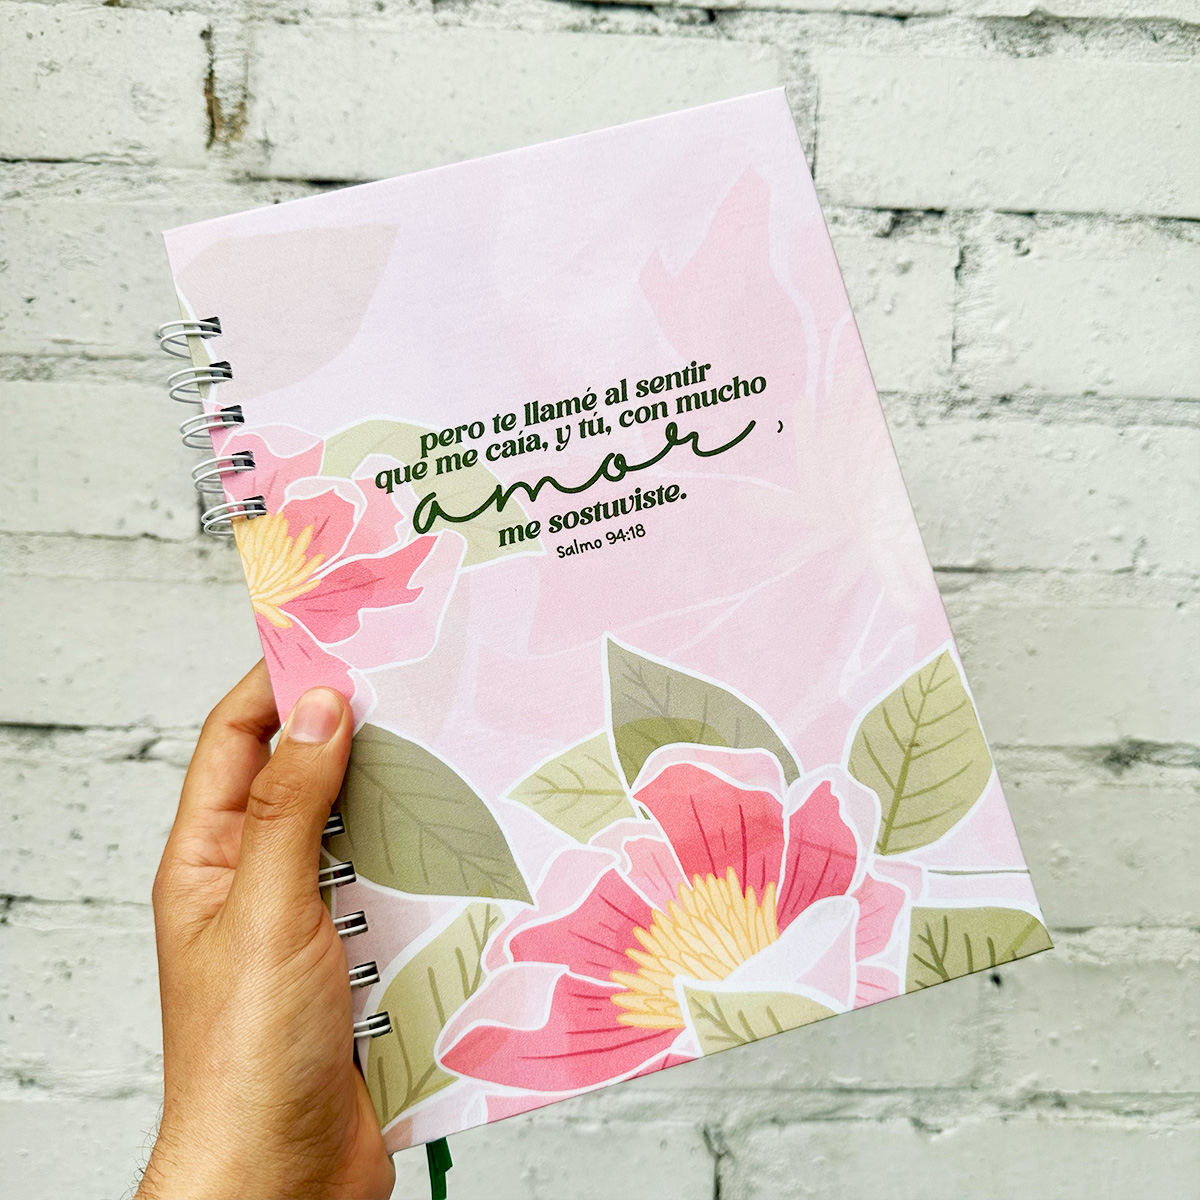 pero te llamé al sentir
que me caía, y tú, con mucho
amor,
me sostuviste.
Salmo 94:18